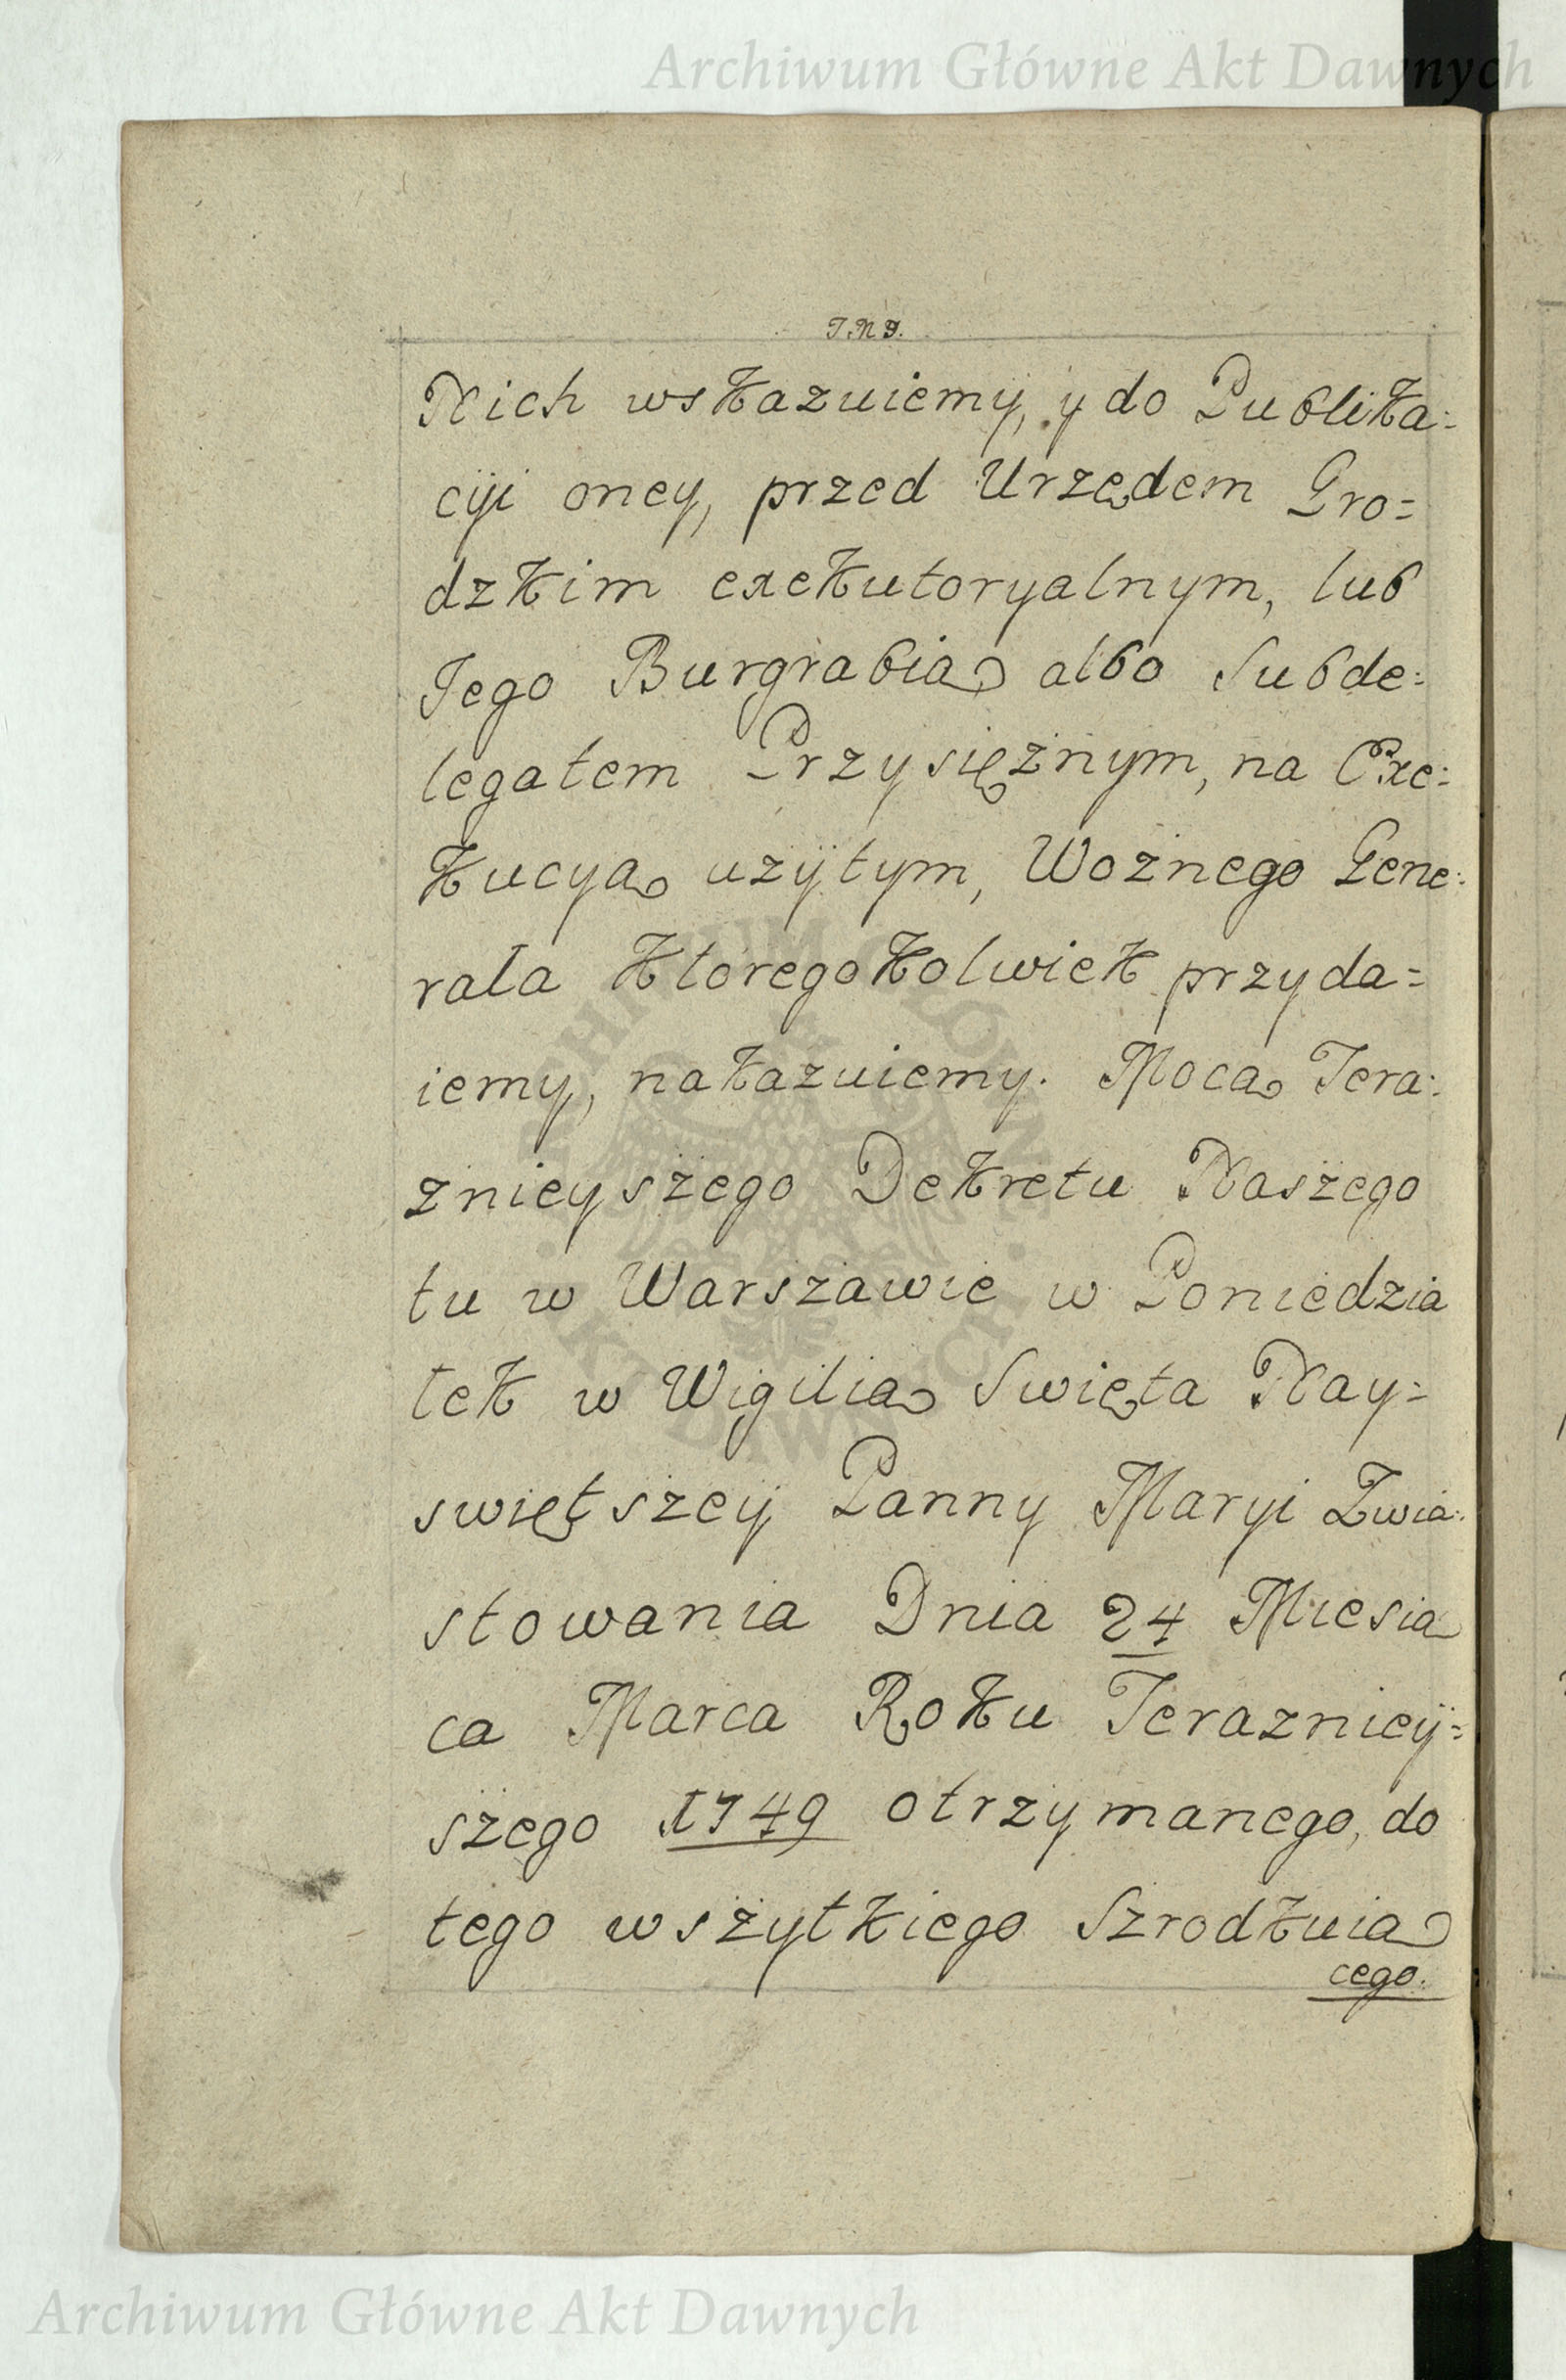 Archiwum Główne Akt Dawnych
J.N.J.
Nich wskazuiemy, y do Publika:
cyi oney, przed Urzędem Gro=
dzkim exekutoryalnym, lub
Jego Burgrabią albo Subde:
legatem Przysiężnym, na Exe:
kucyą użytym, Woźnego Gene:
rała ktoregokolwiek przyda=
iemy, nakazuiemy. Mocą Tera:
znieyszego Dekretu Naszego
tu w Warszawie w Poniedzia
łek w Wigilią Swięta Nay=
swiętszey Panny Maryi Zwia:
stowania Dnia 24 Miesią
ca Marca Roku Terazniey=
szego 1749 otrzymanego, do
tego wszytkiego Szrodkuią
cego.
ARCHIWUM GŁÓWNE · AKT DAWNYCH ·
Archiwum Główne Akt Dawnych